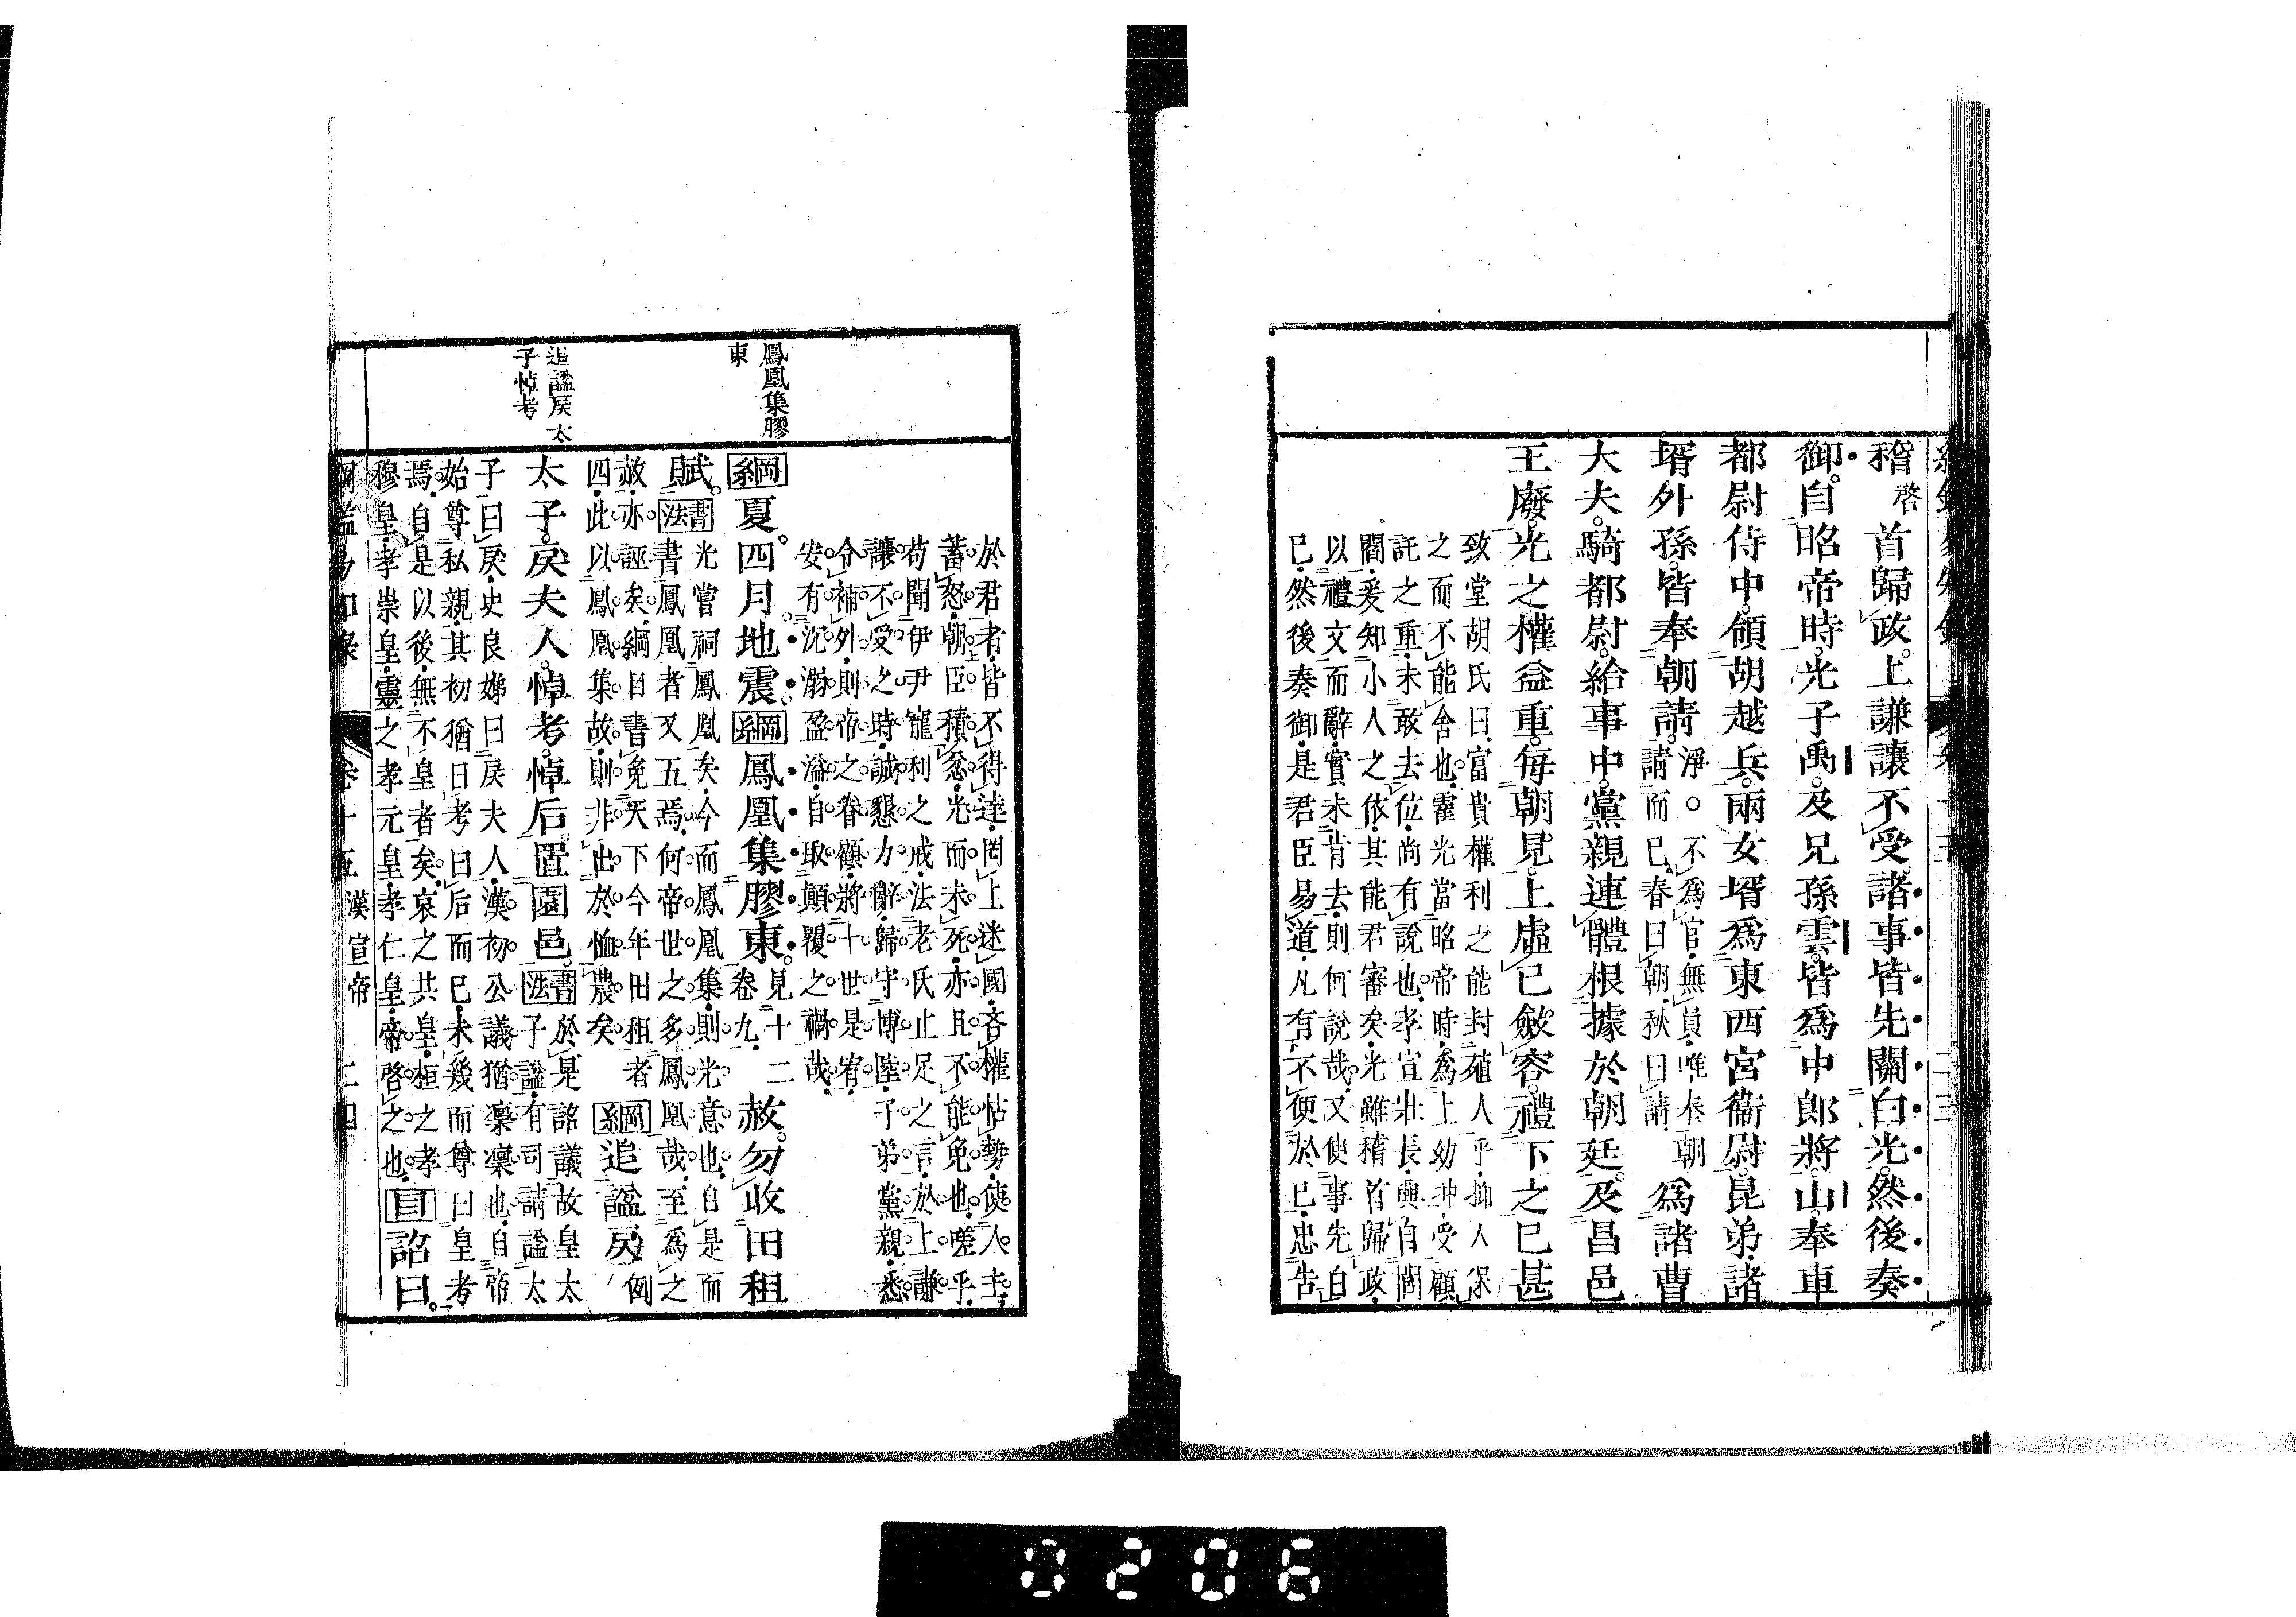 稽啓首歸政。上謙讓不受。諸事皆先關白光。然後奏
御。自昭帝時。光子禹。及兄孫雲。皆爲中郎將。山。奉車
都尉侍中。領胡越兵。兩女壻爲東西宮衞尉。昆弟。諸
壻外孫。皆奉朝請。淨。○不爲官。無員。唯奉朝
請而已。春曰朝。秋曰請。爲諸曹
大夫。騎都尉。給事中。黨親連體根據於朝廷。及昌邑
王廢。光之權益重。每朝見。上虛已斂容。禮下之已甚
致堂胡氏曰。富貴權利之能封殖人乎。抑人深
之而不能舍也。霍光當昭帝時。爲上幼冲。受顧
託之重。未敢去位。尚有說也。孝宣壯長。與自閭
閻。爰知小人之依。其能君審矣。光雖稽首歸政。
以禮文而辭。實未肯去。則何說哉。又使事先白
已。然後奏御。是君臣易道。凡有不便於已。忠告
鳳凰集膠
東
追謚戾太
子悼考
於君者。皆不得達。罔上迷國。吝權怙勢。使人主
蓄怒。朝臣積忿。光而未死。亦且不能免也。嗟乎。
苟聞伊尹寵利之戒。法老氏止足之言。於上謙
讓不受之時。誠懇力辭。歸守博陸。子弟黨親。悉
令補外。則帝之眷顧。將十世是宥。
安有沉溺盈溢。自取顚覆之禍哉。
綱夏。四月。地震。綱鳳凰集膠東。見十二
卷九。赦。勿收田租
賦。書法光嘗祠鳳凰矣。今而鳳凰集。則光意也。自是而
書鳳凰者又五焉。何帝世之多鳳凰哉。至爲之
赦。亦誣矣。綱目書免天下今年田租者
四。此以鳳凰集故。則非出於恤農矣 綱追謚戾例
太子。戾夫人。悼考。悼后。置園邑。書法於是詔議故皇太
子謚。有司請謚太
子曰戾。史良娣曰戾夫人。漢初公議猶凜凜也。自帝
始尊私親。其初猶曰考曰后而已。未幾而尊曰皇考
焉。自是以後。無不皇者矣。哀之共皇。桓之孝
穆皇。孝崇皇。靈之孝元皇。孝仁皇。帝啓之也。目詔曰。
綱鑑易知錄 卷十五 漢宣帝 二四